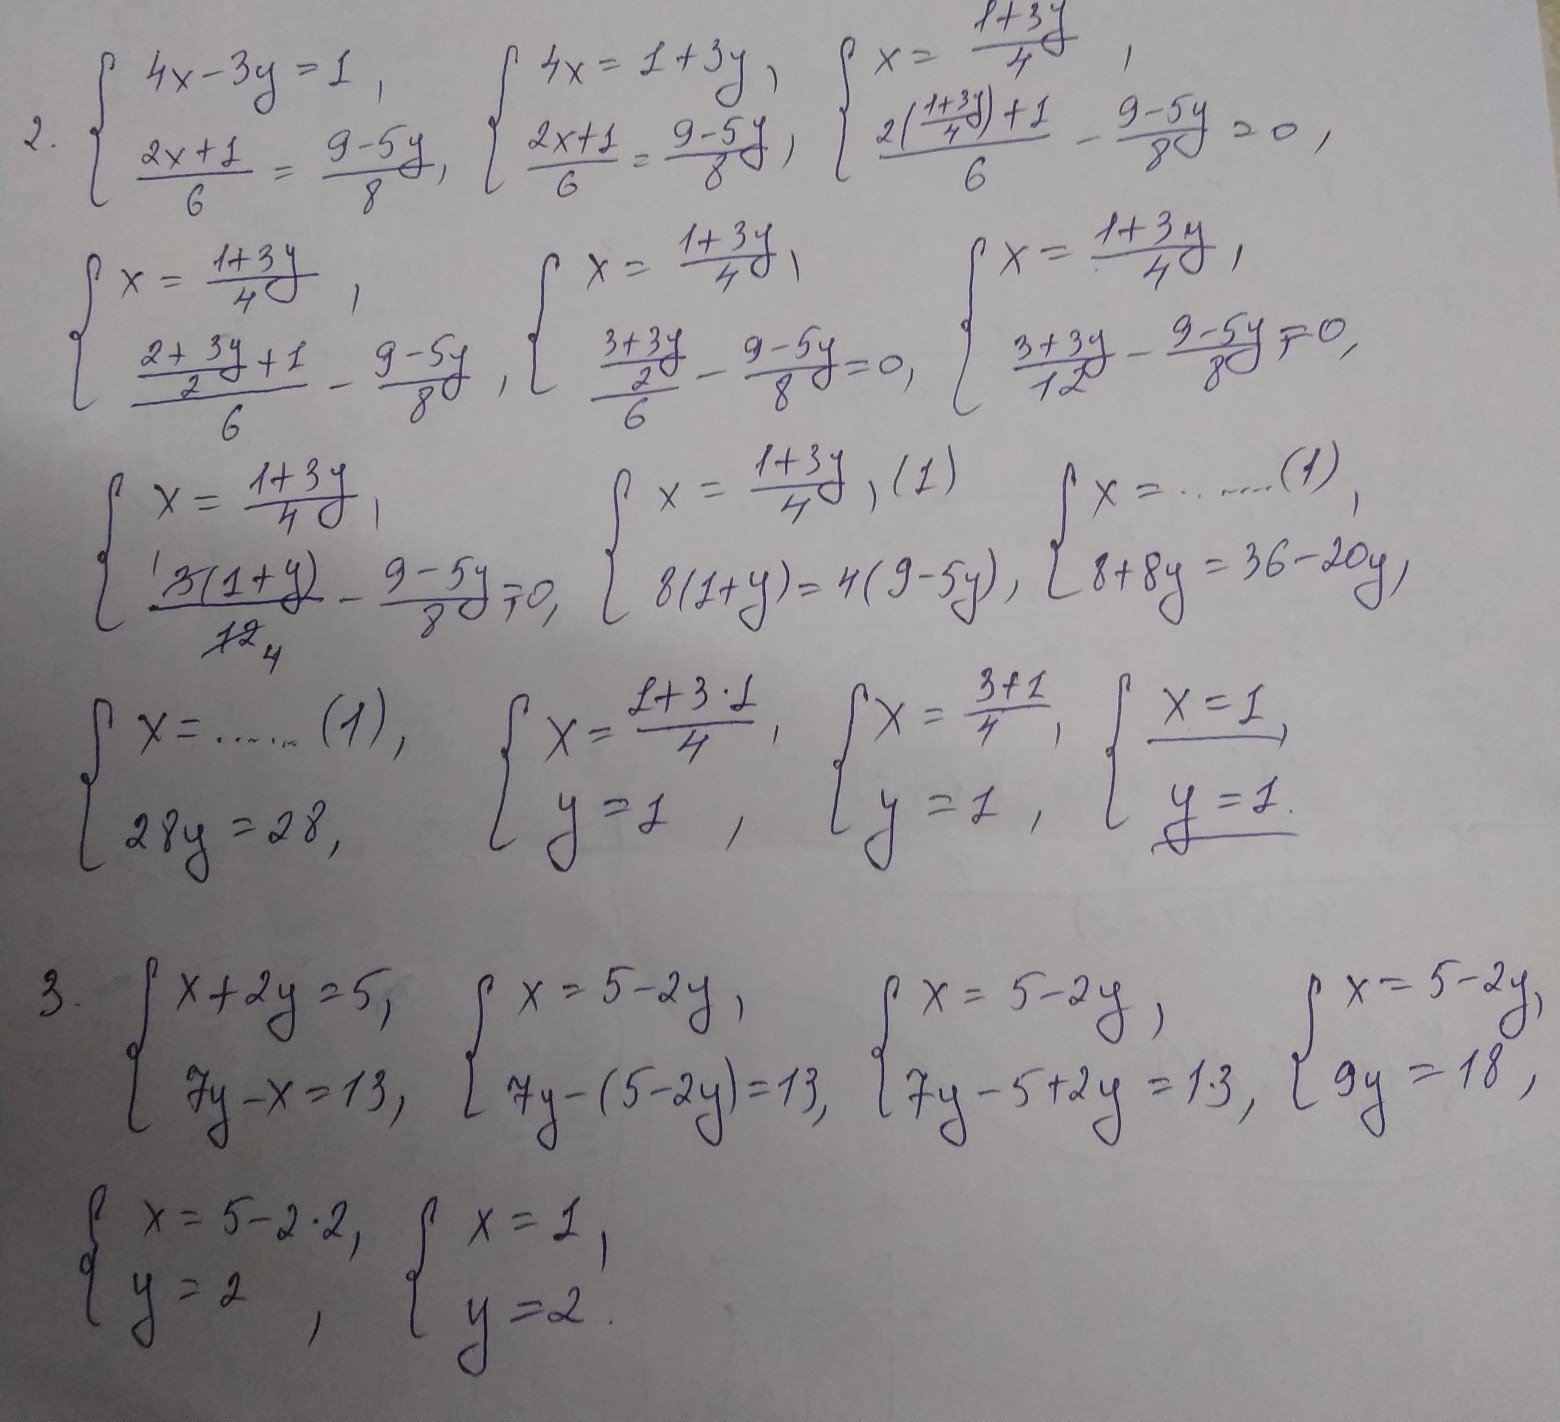 2. { 4x-3y=1, (2x+1)/6 = (9-5y)/8, { 4x=1+3y, (2x+1)/6 = (9-5y)/8, { x=(1+3y)/4, (2((1+3y)/4)+1)/6 - (9-5y)/8 = 0,
{ x=(1+3y)/4, ((2+3y+1)/2)/6 - (9-5y)/8, { x=(1+3y)/4, ((3+3y)/2)/6 - (9-5y)/8=0, { x=(1+3y)/4, (3+3y)/12 - (9-5y)/8=0,
{ x=(1+3y)/4, 3(1+y)/12 4 - (9-5y)/8=0, { x=(1+3y)/4, (1) 8(1+y)=4(9-5y), { x=.......(1), 8+8y=36-20y,
{ x=...... (1), 28y=28, { x=(1+3·1)/4, y=1, { x=(3+1)/4, y=1, { x=1, y=1.
3. { x+2y=5, 7y-x=13, { x=5-2y, 7y-(5-2y)=13, { x=5-2y, 7y-5+2y=13, { x=5-2y, 9y=18,
{ x=5-2·2, y=2, { x=1, y=2.